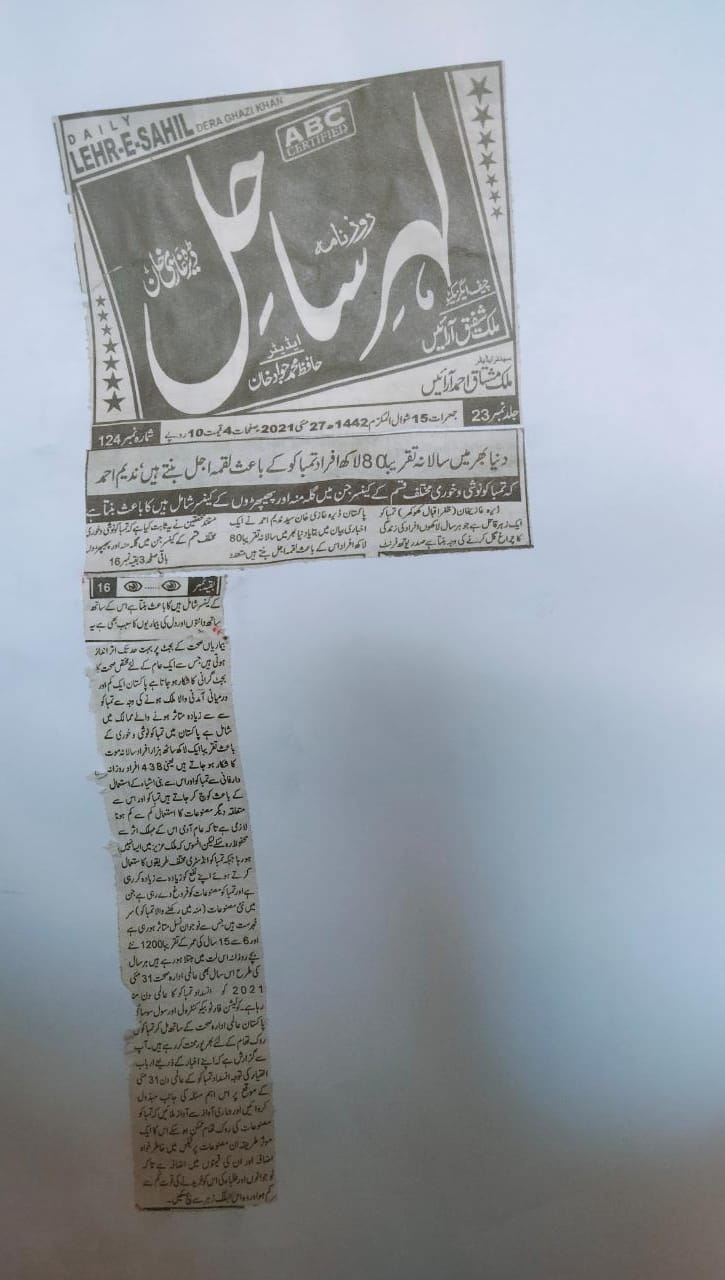 DAILY
LEHR-E-SAHIL DERA GHAZI KHAN
ABC
CERTIFIED
روزنامہ
لہر ساحل
ڈیرہ غازی خان
چیف ایگزیکٹو
ملک شفیق آرائیں
ایڈیٹر
حافظ محمد جواد خان
سینئر ایڈیٹر
ملک مشتاق احمد آرائیں
جلد نمبر 23 جمعرات 15 شوال المکرم 1442ھ 27 مئی 2021 صفحات 4 قیمت 10 روپے شمارہ نمبر 124
دنیا بھر میں سالانہ تقریبا 80 لاکھ افراد تمباکو کے باعث لقمہ اجل بنتے ہیں، ندیم احمد
کہ تمباکو نوشی و خوری مختلف قسم کے کینسر جن میں گلہ منہ اور پھیپھڑوں کے کینسر شامل ہیں کا باعث بنتا ہے
ڈیرہ غازیخان (ظفر اقبال کھوکھر) تمباکو
ایک زہر قاتل ہے جو ہر سال لاکھوں افراد کی زندگی
کا چراغ گل کرنے کی وجہ بنتا ہے صدر یوتھ فرنٹ
پاکستان ڈیرہ غازی خان سید ندیم احمد نے ایک
اخباری بیان میں بتایا دنیا بھر میں سالانہ تقریبا 80
لاکھ افراد اس کے باعث لقمہ اجل بنتے ہیں متعدد
مستند تحقیقی نے یہ ثابت کیا ہے کہ تمباکو نوشی و خوری
مختلف قسم کے کینسر جن میں گلہ منہ اور پھیپھڑوں
باقی صفحہ 3 بقیہ نمبر 16
بقیہ نمبر 16
کے کینسر شامل ہیں کا باعث بنتا ہے اس کے ساتھ
ساتھ دانتوں اور دل کی بیماریوں کا سبب بھی ہے یہ
بیماریاں صحت کے بجٹ پر بہت حد تک اثر انداز
ہوتی ہیں جس سے ایک عام کے لئے مختص صحت کا
بجٹ گرانی کا شکار ہو جاتا ہے پاکستان ایک کم اور
درمیانی آمدنی والا ملک ہونے کی وجہ سے تمباکو
سے سے زیادہ متاثر ہونے والے ممالک میں
شامل ہے پاکستان میں تمباکو نوشی و خوری کے
باعث تقریبا ایک لاکھ ساٹھ ہزار افراد سالانہ موت
کا شکار ہو جاتے ہیں یعنی 438 افراد روزانہ
دار فانی سے تمباکو اور اس سے بنی اشیاء کے استعمال
کے باعث کوچ کر جاتے ہیں تمباکو اور اس سے
متعلقہ دیگر مصنوعات کا استعمال کم سے کم ہونا
لازمی ہے تاکہ عام آدمی اس کے مہلک اثر سے
محفوظ رہ سکے لیکن افسوس کہ ملک عزیز میں ایسا نہیں
ہو رہا جبکہ تمباکو انڈسٹری مختلف طریقوں کا استعمال
کرتے ہوئے اپنے نفع کو زیادہ سے زیادہ کر رہی
ہے اور تمباکو مصنوعات کو فروغ دے رہی ہے جن
میں نئی مصنوعات (منہ میں رکھنے والا تمباکو) سر
فہرست ہیں جس سے نوجوان نسل متاثر ہو رہی ہے
اور 6 سے 15 سال کی عمر کے تقریبا 1200 نئے
بچے روزانہ اس لت میں مبتلا ہو رہے ہیں ہر سال
کی طرح اس سال بھی عالمی ادارہ صحت 31 مئی
2021 کو انسداد تمباکو کا عالمی دن منا
رہا ہے۔ کولیشن فار ٹوبیکو کنٹرول اور سول سوسائٹی
پاکستان عالمی ادارہ صحت کے ساتھ مل کر تمباکو کی
روک تھام کے لئے بھرپور محنت کر رہے ہیں۔ آپ
سے گزارش ہے کہ اپنے اخبار کے ذریعے ارباب
اختیار کی توجہ انسداد تمباکو کے عالمی دن 31 مئی
کے موقع پر اس اہم مسئلہ کی جانب مبذول
کروائیں اور ہماری آواز سے آواز ملائیں کہ تمباکو
مصنوعات کی روک تھام ممکن ہو سکے اس کا ایک
موثر طریقہ ان مصنوعات پر ٹیکس میں خاطر خواہ
اضافہ اور ان کی قیمتوں میں اضافہ ہے تاکہ
نوجوانوں اور طلباء کی اس کو خریدنے کی قوت کم سے
کم ہو اور وہ اس مہلک زہر سے بچ سکیں۔